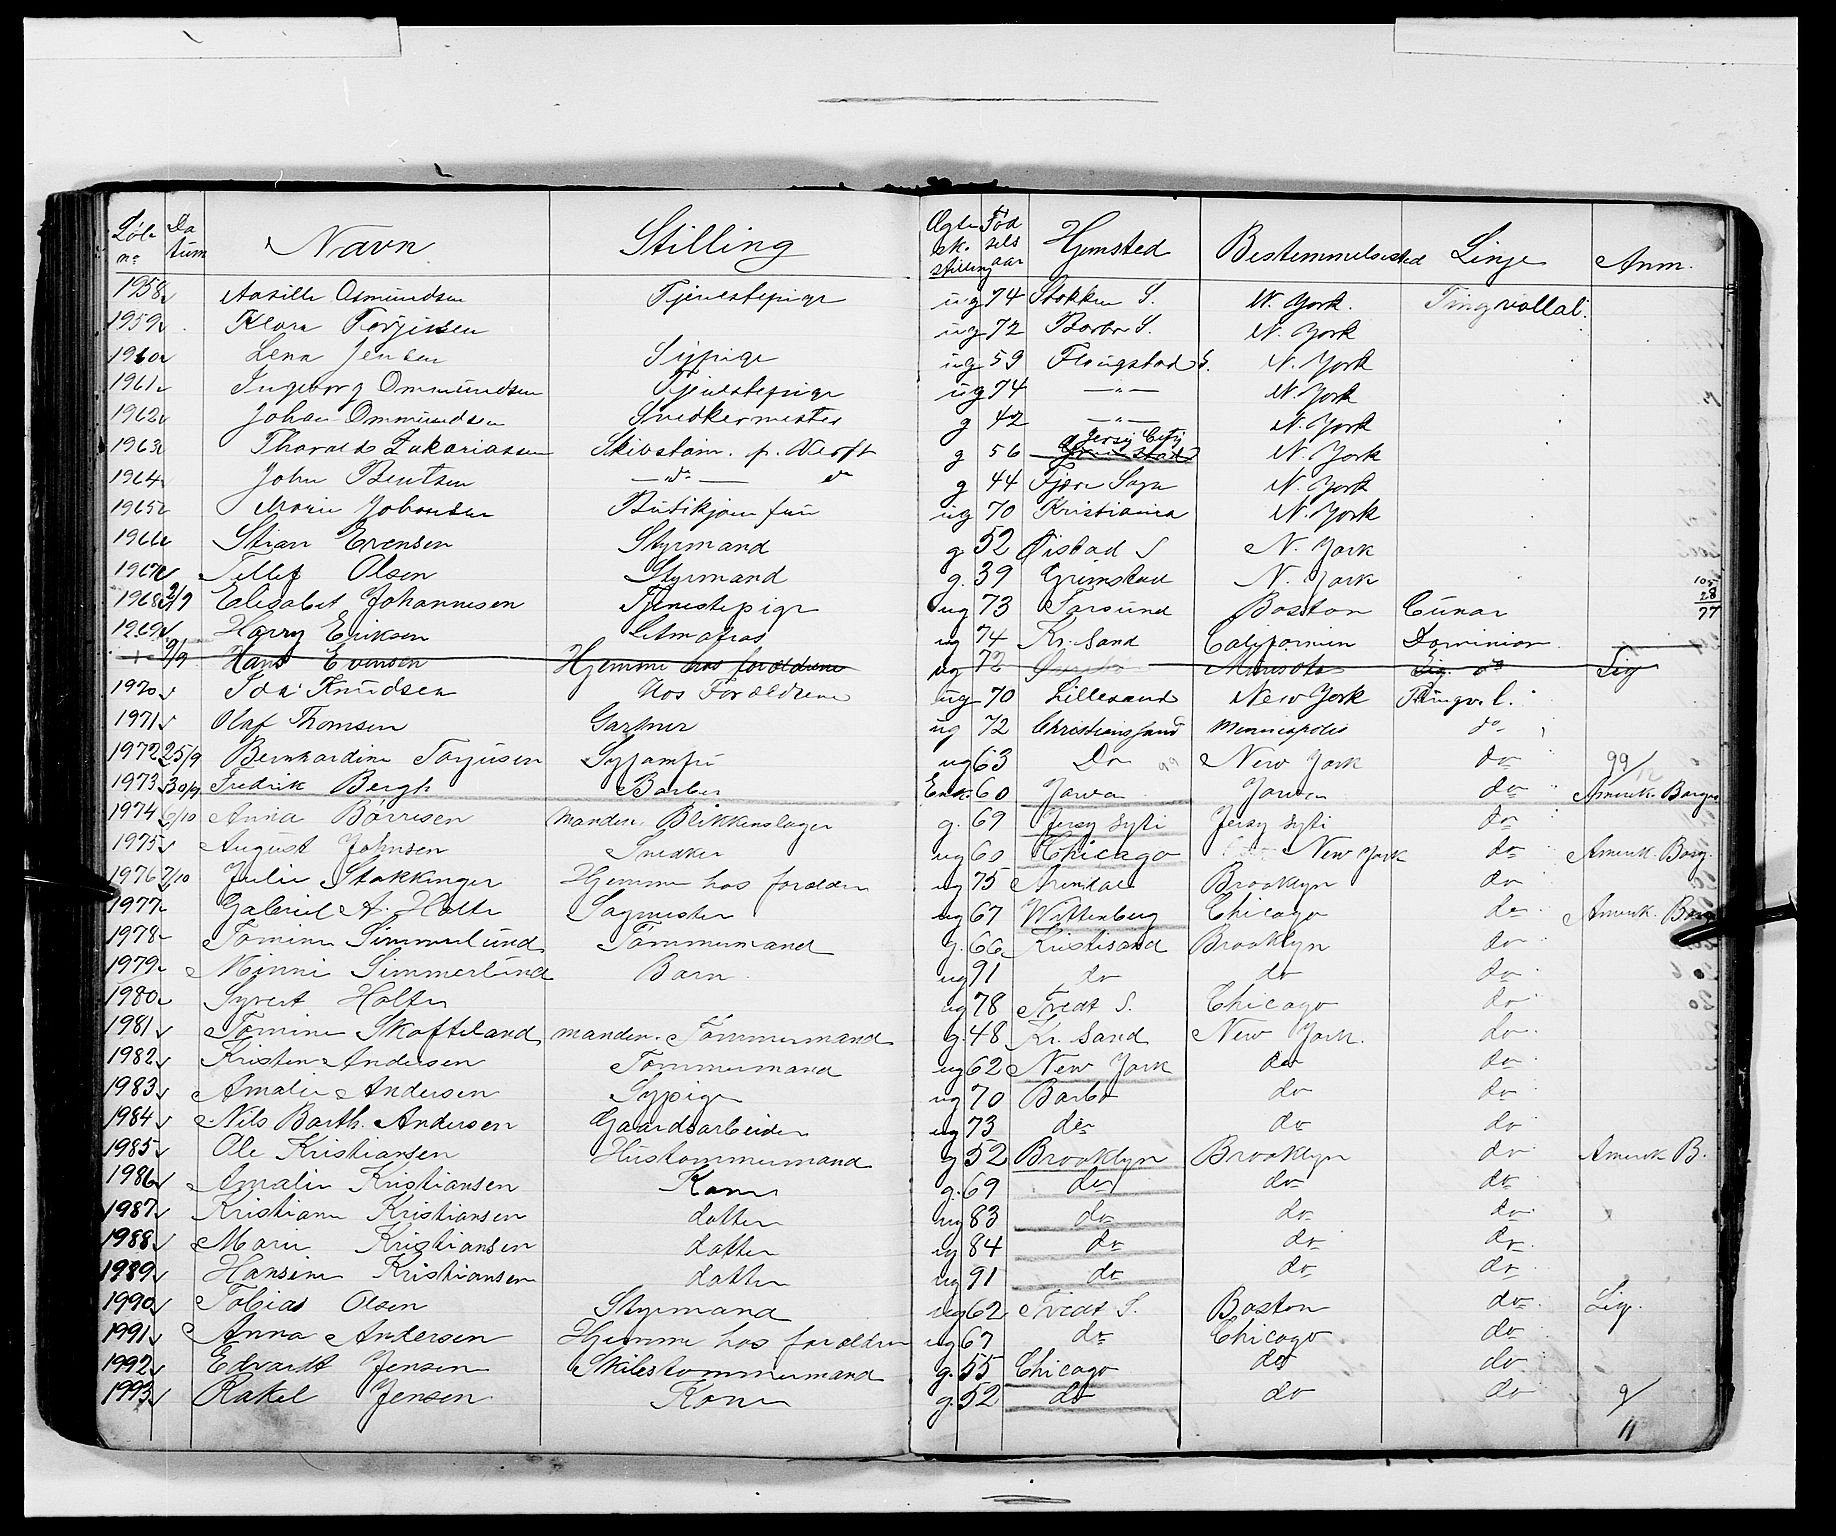 Løb n° Datum Navn Stilling Ægtesk. stilling Fødselsaar Hjemsted Bestemmelsessted Linje Anm.
1958 Aasille Osmundsen Tjenestepige ug 74 Stokken S. N. York. Tingvallal.
1959 Klara Terjissen ug 72 Barbo S. N. York
1960 Lena Jensen Sypige ug 59 S. N. York
1961 Ingeborg Ommundsen Tjenestepige ug 74 —"— N. York
1962 Johan Ommundsen Snedkermester g 42 —"— N. York
1963 Tharald Zakariassen g 56 Jersy City N. York
1964 John Bentsen —do— do g 44 Fjære Sogn N. York
1965 Marie Johansen Butikjomfru ug 70 Kristiania N. York
1966 Stian Evensen Styrmand g 52 Øistad S N. York
1967 Tellef Olsen Styrmand g. 39 Grimstad N. York
1968 2/9 Elisabet Johannesen Tjenestepige ug 73 Farsund Boston Cunar 105 28 77
1969 Harry Eriksen Letmatros ug 74 Kr. sand Californien Dominion
9/9 Hans Evensen Hjemme hos forældrene ug 72 Minisota Lig. do Lig
1970 Ida Knudsen Hos Forældrene ug 70 Lillesand New York Tingv. l.
1971 Olaf Thomsen Gartner ug 72 Christianssand Minneapolis do
1972 25/9 Bernhardine Torjusen Syjomfru ug 63 Do New York do 99/12
1973 30/9 Fredrik Bergh Barber Enk. 60 Jowa Jowa do Amerik. Borger
1974 2/10 Anna Børresen manden. Blikkenslager g. 69 Jersy syti Jersy syti do
1975 August Johnsen Snedker ug 60 Chicago New York do Amerik. Borg.
1976 7/10 Julie Stakkinger Hjemme hos forældre ug 75 Arendal Brooklyn do
1977 Gabriel A. Holte Sagmester ug 67 Wittenberg Chicago do Amerik. Borg
1978 Tomine Simmerlund Tømmermand g. 66 Kristisand Brooklyn do
1979 Minni Simmerlund Barn. ug 91 do do do
1980 Syvert Holte ug 78 Tvedt S. Chicago do
1981 Tomine Skofteland manden. Tømmermand g. 48 Kr. sand New York. do
1982 Kristen Andersen Tømmermand ug 62 New York do do
1983 Amalie Andersen Sypige ug 70 Barbo do do
1984 Nils Barth. Andersen Gaardsarbeider ug 73 do do do
1985 Ole Kristiansen Hustommermand g 52 Brooklyn Brooklyn do Amerik B.
1986 Amalie Kristiansen Kone g. 69 do do do
1987 Kristiane Kristiansen datter ug 83 do do do
1988 Marie Kristiansen datter ug 84 do do do
1989 Hansine Kristiansen datter ug 91 do do do
1990 Tobias Olsen Styrmand ug 62 Tvedt S. Boston do Lig.
1991 Anna Andersen Hjemme hos forældre ug 67 do Chicago do
1992 Edvardt Jensen Skibstommermand g. 55 Chicago do do
1993 Rakel Jensen Kone g. 52 do do do 9/11